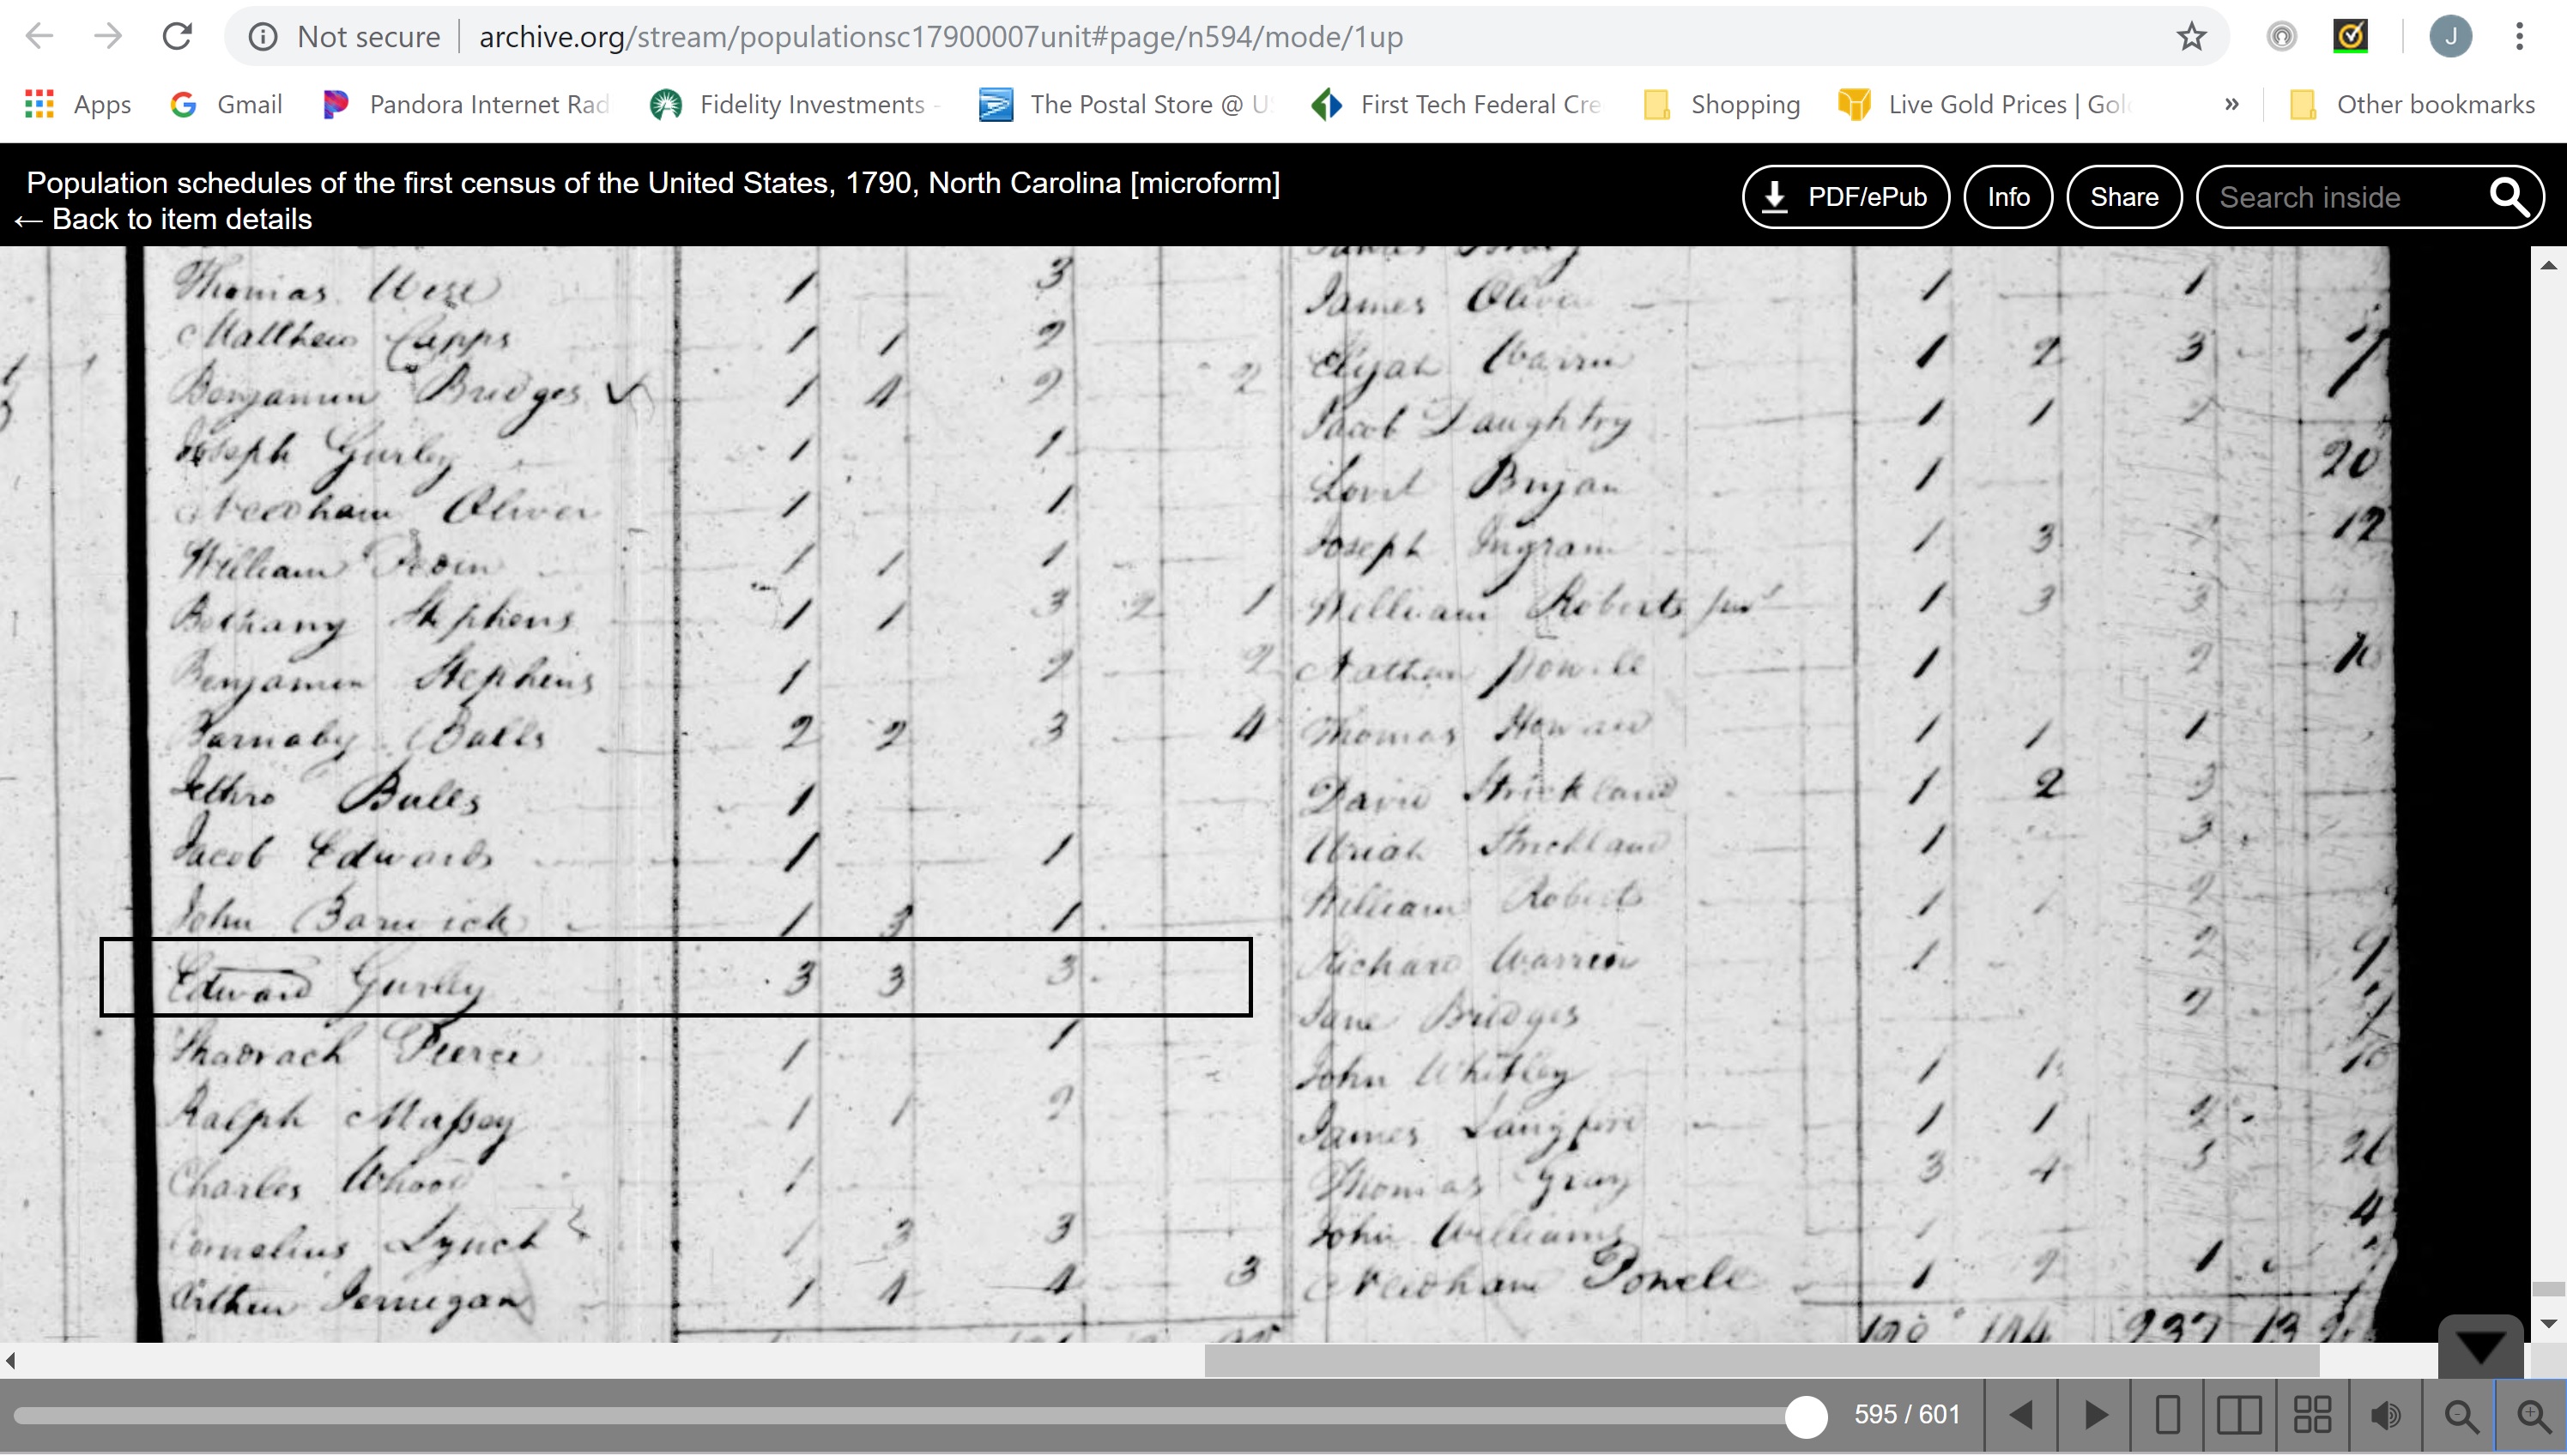 Not secure archive.org/stream/populationsc17900007unit#page/n594/mode/1up J
Apps Gmail Pandora Internet Rad Fidelity Investments - The Postal Store @ U First Tech Federal Cre Shopping Live Gold Prices | Gol » Other bookmarks
Population schedules of the first census of the United States, 1790, North Carolina [microform]
← Back to item details
PDF/ePub Info Share Search inside
Thomas West 1 3
Matthew Capps 1 1 2
Benjamin Bridges 1 4 2 2
Joseph Gurley 1 1
Needham Oliver 1 1
William 1 1 1
Bethany Stephens 1 1 3 2 1
Benjamin Stephens 1 2 2
Barnaby Bulls 2 2 3 4
Jethro Bulls 1
Jacob Edwards 1 1
John Barwick 1 3 1
Edward Gurley 3 3 3
Shadrach Pierce 1 1
Ralph Massey 1 1 2
Charles Whood 1
Cornelius Lynch 1 3 3
Arthur Jernigan 1 4 4 3
James
James Oliver 1 1
Elijah Warren 1 2 3
Jacob Daughtry 1 1 2
Bryan 1 20
Joseph Ingram 1 3 12
William Roberts 1 3 3
Nathan Powell 1 2
Thomas Howard 1 1 1
David Strickland 1 2 3
Uriah Strickland 1 3
William Roberts 1 2
Richard Warren 1 2 9
Jane Bridges 2
John Whitley 1 1
James Langford 1 1 2
Thomas Gray 3 4
John Williams 4
Needham Powell 1 2 1
237 13
595 / 601